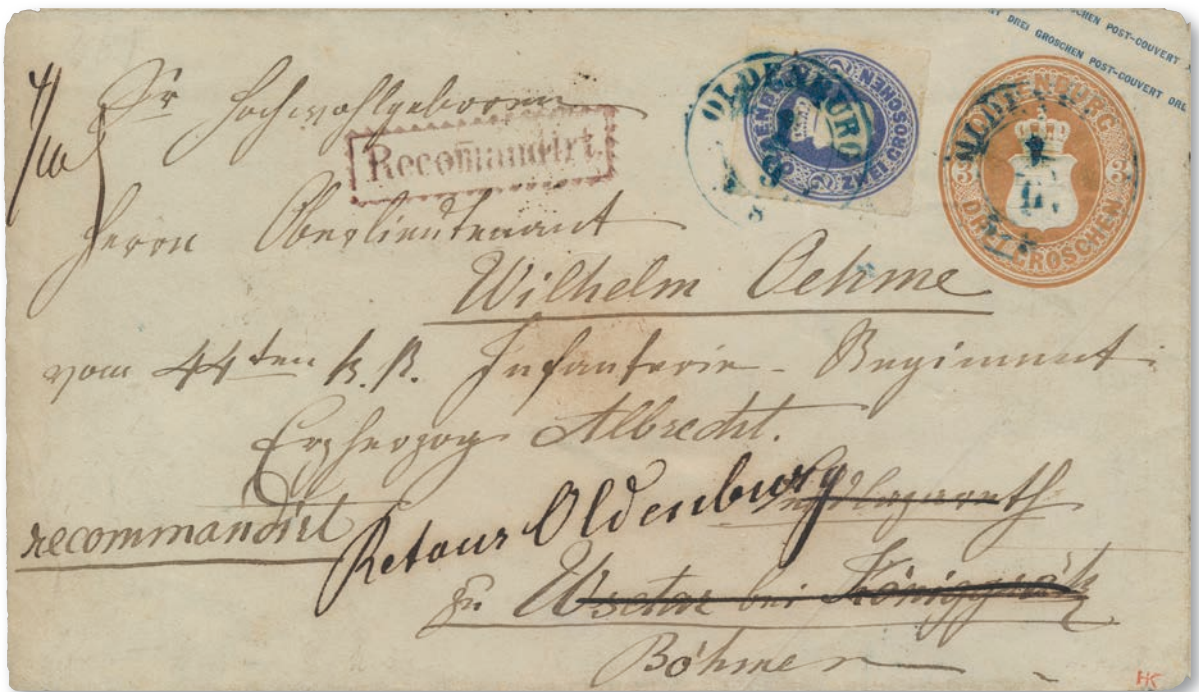 GROSCHEN POST-COUVERT
DREI GROSCHEN POST-COUVERT DR
OLDENBURG
ZWEI GROSCHEN
OLDENBURG
DREI GROSCHEN
4/10
Sr Hochwohlgeboren
Recom̄andirt.
Herrn Oberlieutenant
Wilhelm Oehme
vom 44ten K. K. Infanterie-Regiment
Erzherzog Albrecht.
recommandirt
Retour Oldenburg
Feldlazareth
zu Wsetar bei Königgrätz
Böhmen
HK